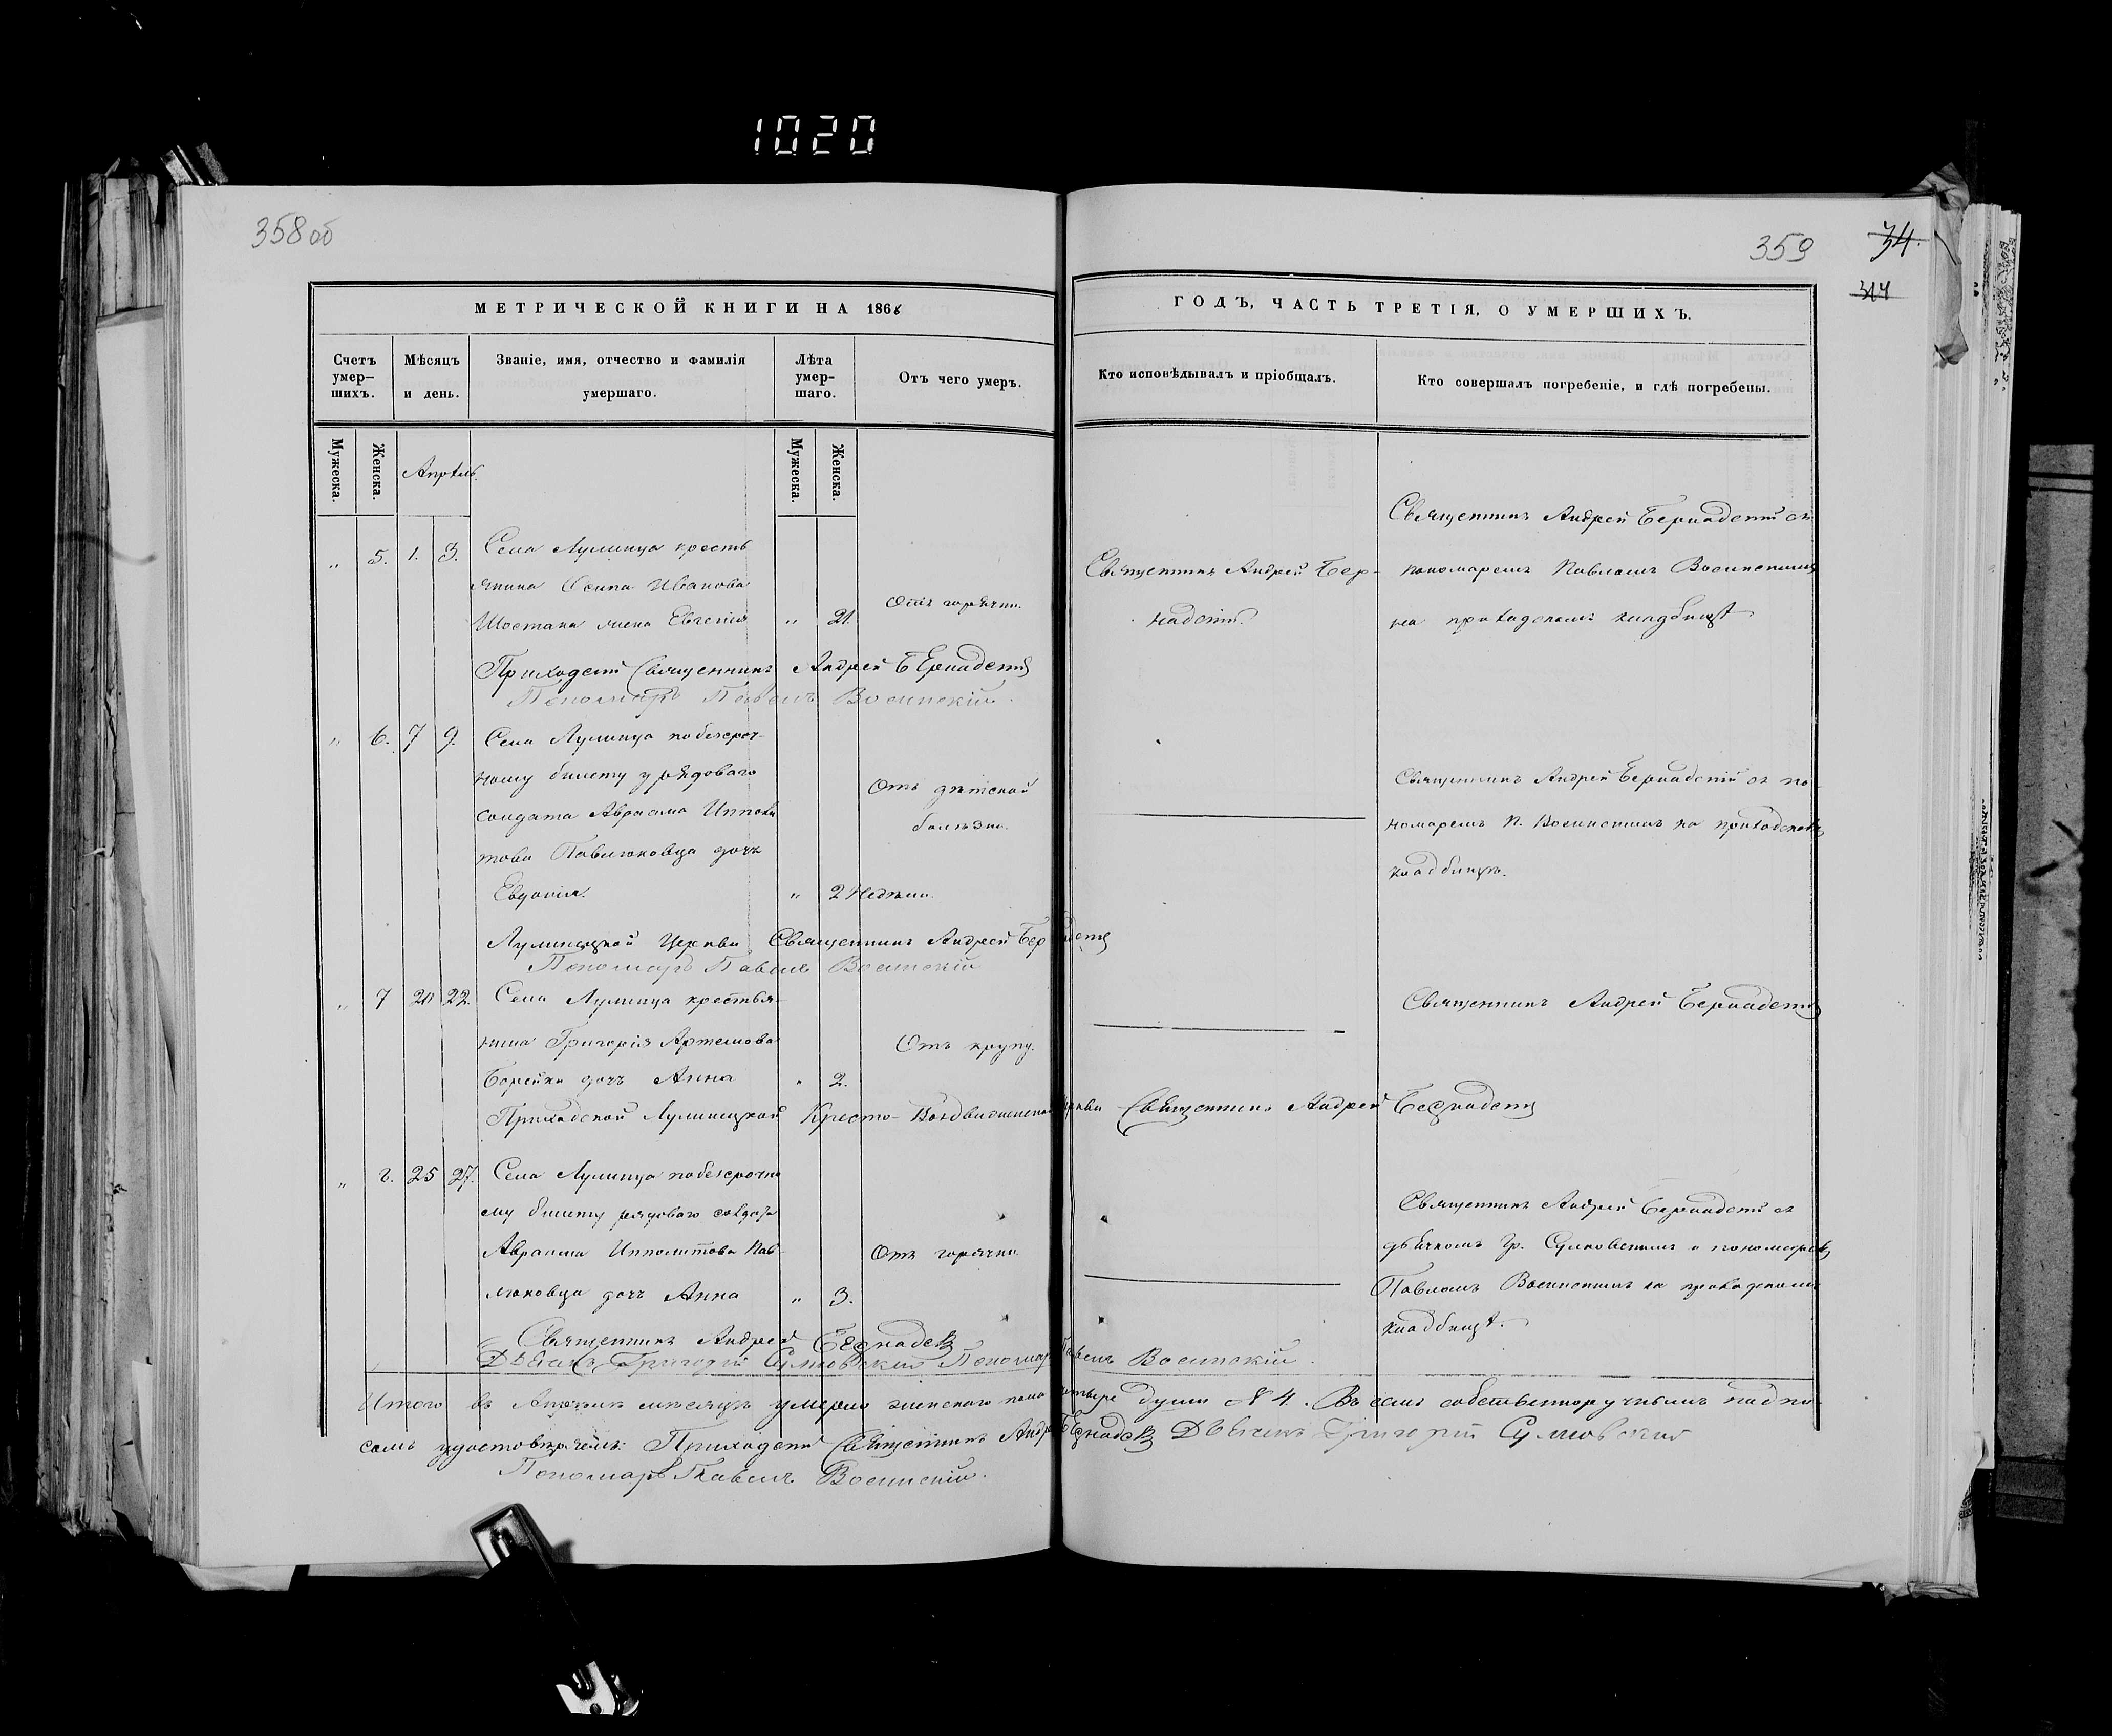 1020
358 об
359
34.
314
МЕТРИЧЕСКОЙ КНИГИ НА 1868
ГОДЪ, ЧАСТЬ ТРЕТІЯ, О УМЕРШИХЪ.
Счетъ умер-шихъ.
Мѣсяцъ и день.
Званіе, имя, отчество и фамилія умершаго.
Лѣта умер-шаго.
Отъ чего умеръ.
Кто исповѣдывалъ и пріобщалъ.
Кто совершалъ погребеніе, и гдѣ погребены.
Мужеска.
Женска.
Апрѣль.
Мужеска.
Женска.
„ 5. 1. 3. Села Лулинца кресть
янина Осипа Иванова
Шостака жена Евгенія „ 21.
Отъ горячки.
Священникъ Андрей Бер-
надскій.
Священникъ Андрей Бернадскій съ
пономаремъ Павломъ Волинскимъ
на приходскомъ кладбищѣ
Приходскій Священникъ Андрей Бернадскій
Пономарь Павелъ Воллнскій.
„ 6. 7 9. Села Лулинца по безсроч-
ному билету у рядоваго
солдата Авраама Иппoли
това Павлюковца дочь
Евдокія. „ 2 недѣли.
Отъ дѣтской
болѣзни.
Священникъ Андрей Бернадскій съ по-
номаремъ П. Воллнскимъ на приходскомъ
кладбищѣ.
Лулинецкой Церкви Священникъ Андрей Бернадскій
Пономарь Павелъ Воллнскій
„ 7 20 22. Села Лулинца крестья-
нина Григорія Артемова
Борейки дочь Анна „ 2.
Отъ крупу.
Священникъ Андрей Бернадскій
Приходской Лулинецкой Кресто-Воздвиженской церкви Священникъ Андрей Бернадскій
„ 8. 25 27. Села Лулинца по безсрочно
му билету рядоваго солдата
Авраама Ипполитова Пав-
люковца дочь Анна „ 3.
Отъ горячки.
Священникъ Андрей Бернадскій съ
дьячкомъ Гр. Сулковскимъ и пономаремъ
Павломъ Воллнскимъ на приходскомъ
кладбищѣ.
Священникъ Андрей Бернадскій
Дьячекъ Григорій Сулковскій Пономарь Павелъ Воллнскій.
Итого въ Апрѣлѣ мѣсяцѣ умерло женскаго пола четыре души № 4. Въ семъ собственноручнымъ подпи-
сомъ удостовѣряемъ: Приходскій Священникъ Андрей Бернадскій Дьячекъ Григорій Сулковскій
Пономарь Павелъ Воллнскій.